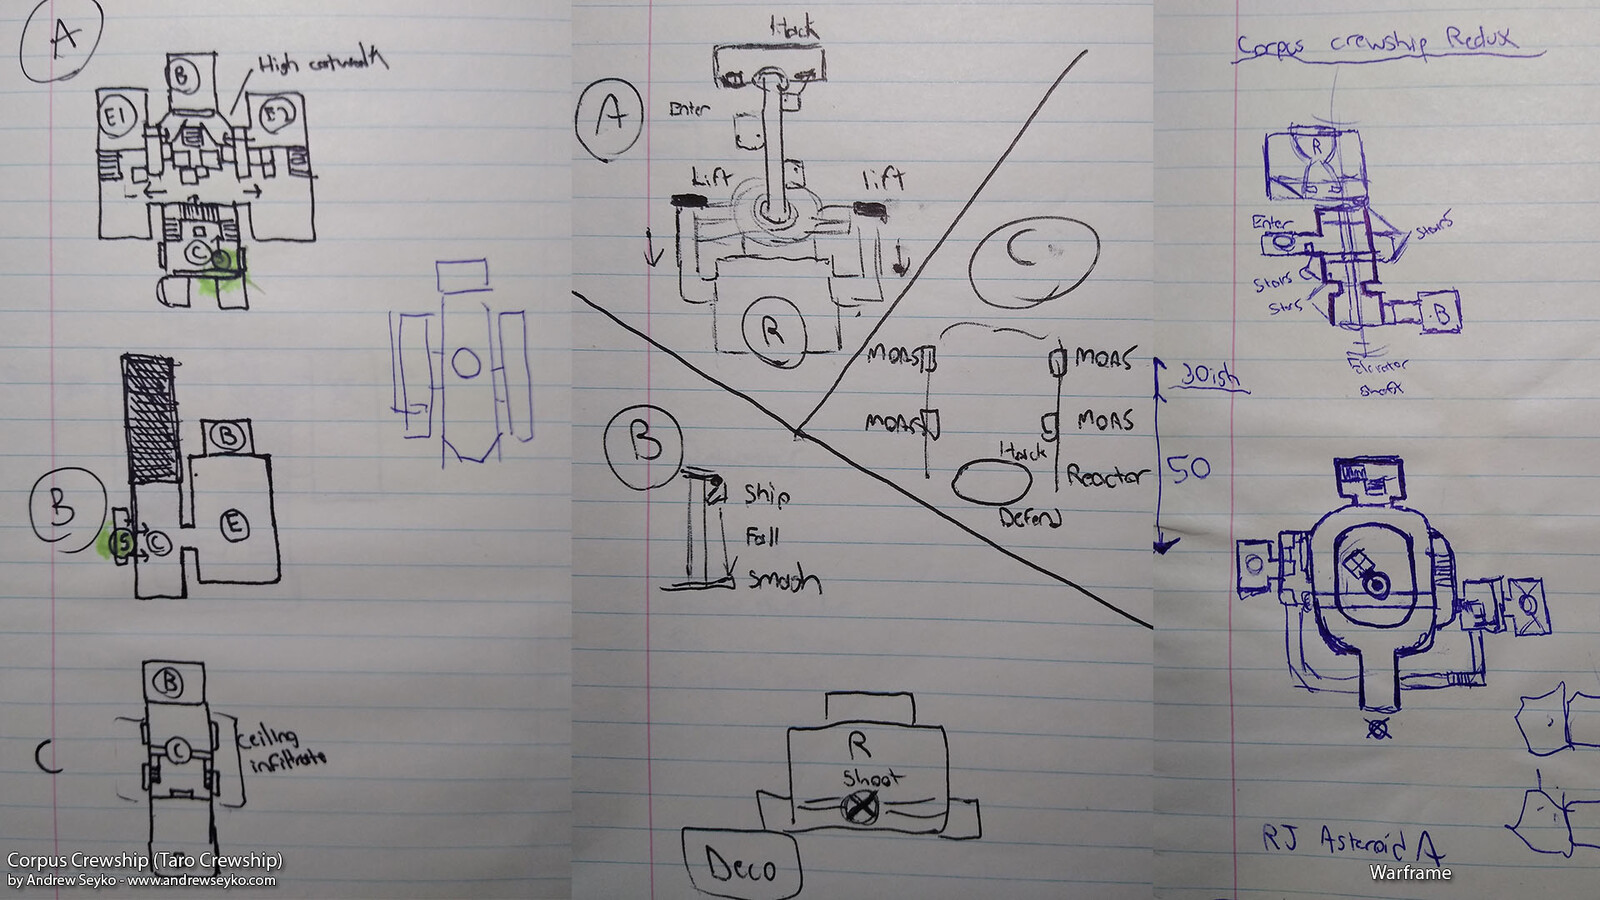 A
High catwalk
B
E1
E2
C
B
B
E
S
C
C
B
C
Ceiling
infiltrate
Hack
A
Enter
Lift
lift
R
C
MOAS
MOAS
MOAS
MOAS
Hack
Reactor
Defend
B
Ship
Fall
Smash
R
Shoot
Deco
Corpus crewship Redux
R
Enter
Stairs
Stairs
Stairs
B
Elevator
Shaft
30ish
50
RJ Asteroid A
Corpus Crewship (Taro Crewship)
by Andrew Seyko - www.andrewseyko.com
Warframe